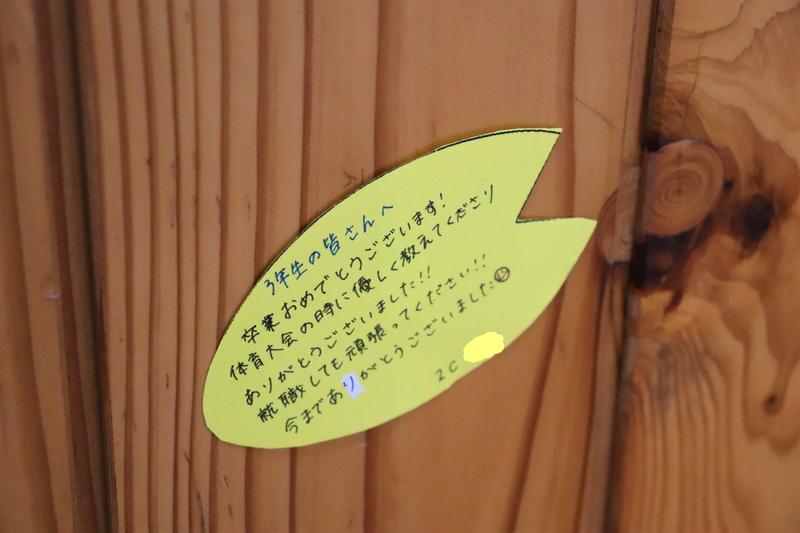 3年生の皆さんへ
卒業おめでとうございます!
体育大会の時に優しく教えてくださり
ありがとうございました!!
就職しても頑張ってください!!
今までありがとうございました
2C